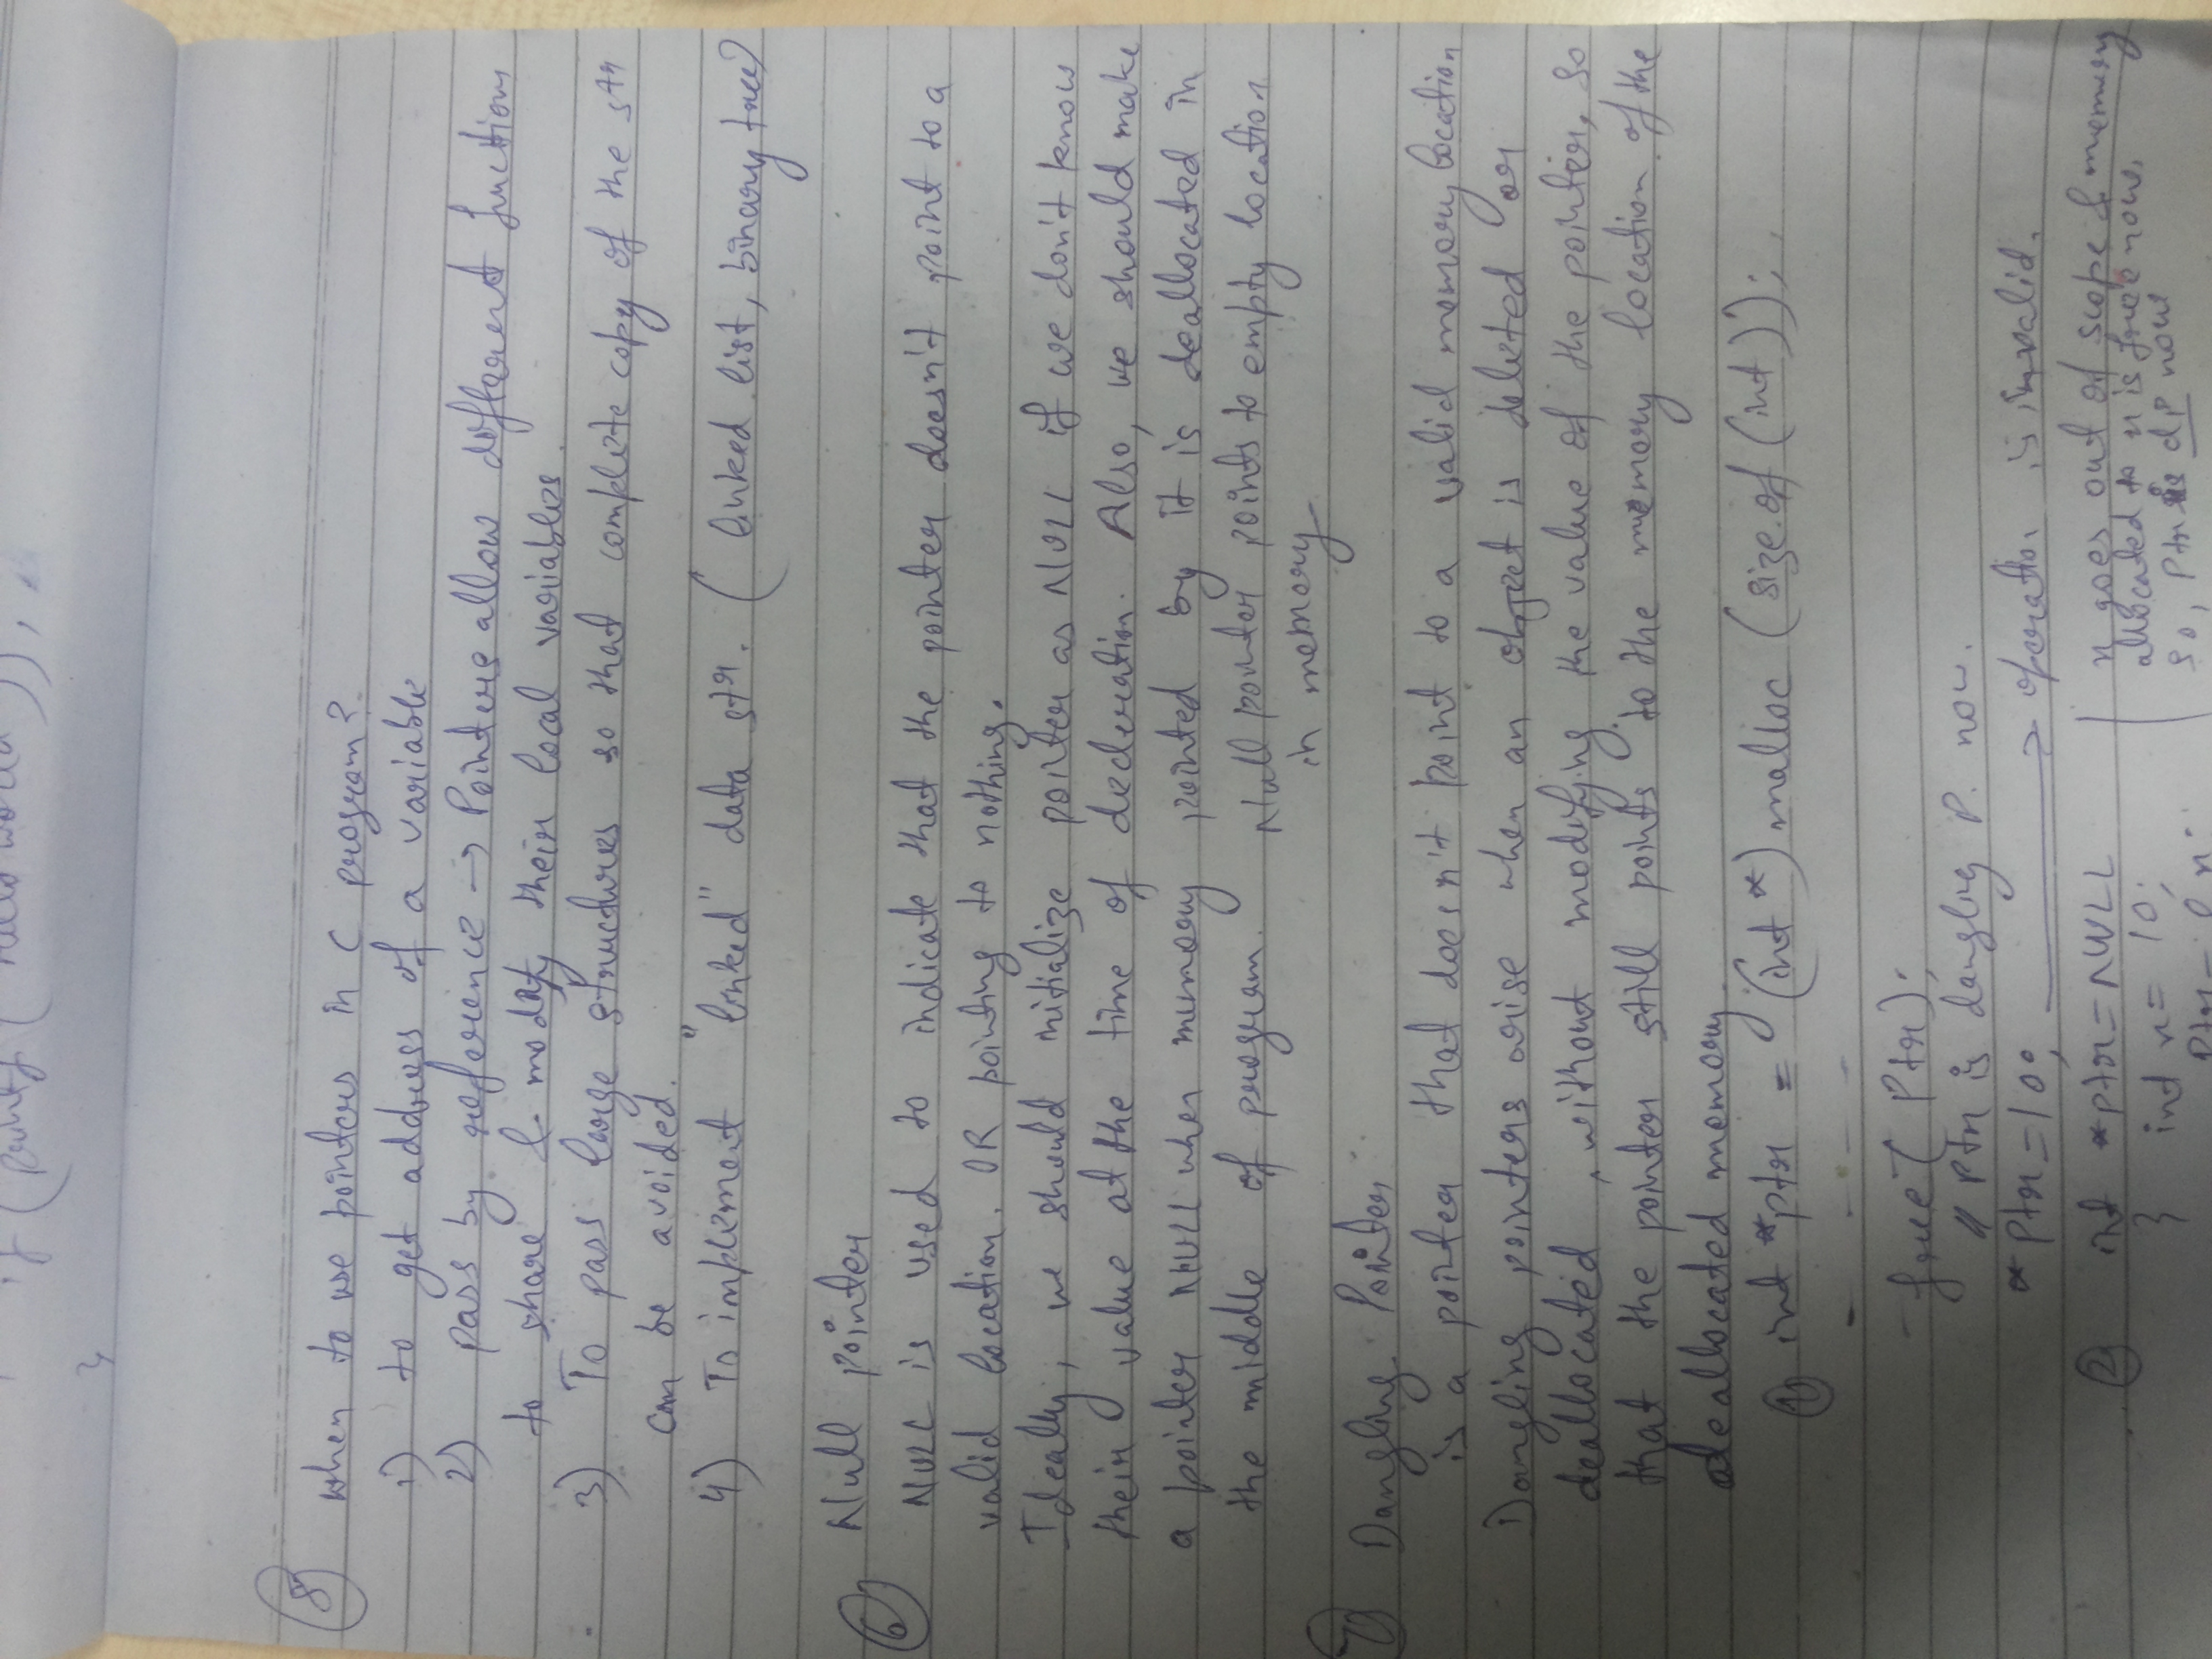 if (printf ( "Hello world" )) ;
}
8 when to use pointers in C program?
1) to get address of a variable
2) pass by reference → Pointers allow different functions
to share & modify their local variables.
3) To pass large structures so that complete copy of the str
can be avoided.
4) To implement "linked" data str. ( linked list, binary tree)
6 Null pointer
NULL is used to indicate that the pointer doesn't point to a
valid location. OR pointing to nothing.
Ideally, we should initialize pointer as NULL if we don't know
their value at the time of decleration. Also, we should make
a pointer NULL when memory pointed by it is deallocated in
the middle of program. Null pointer points to empty location
in memory
7 Dangling Pointer
is a pointer that doesn't point to a valid memory location
Dangling pointers arise when an object is deleted or
deallocated, without modifying the value of the pointer, so
that the pointer still points to the memory location of the
deallocated memory.
1) int *ptr = (int *) malloc (size.of (int));
- - - - -
free ( Ptr);
// Ptr is dangling P. now.
* Ptr = 10; → operation is invalid.
2 int *ptr = NULL
} int n = 10;
Ptr = & n;
n goes out of scope & memory
allocated to n is free now.
so, Ptr is dp now